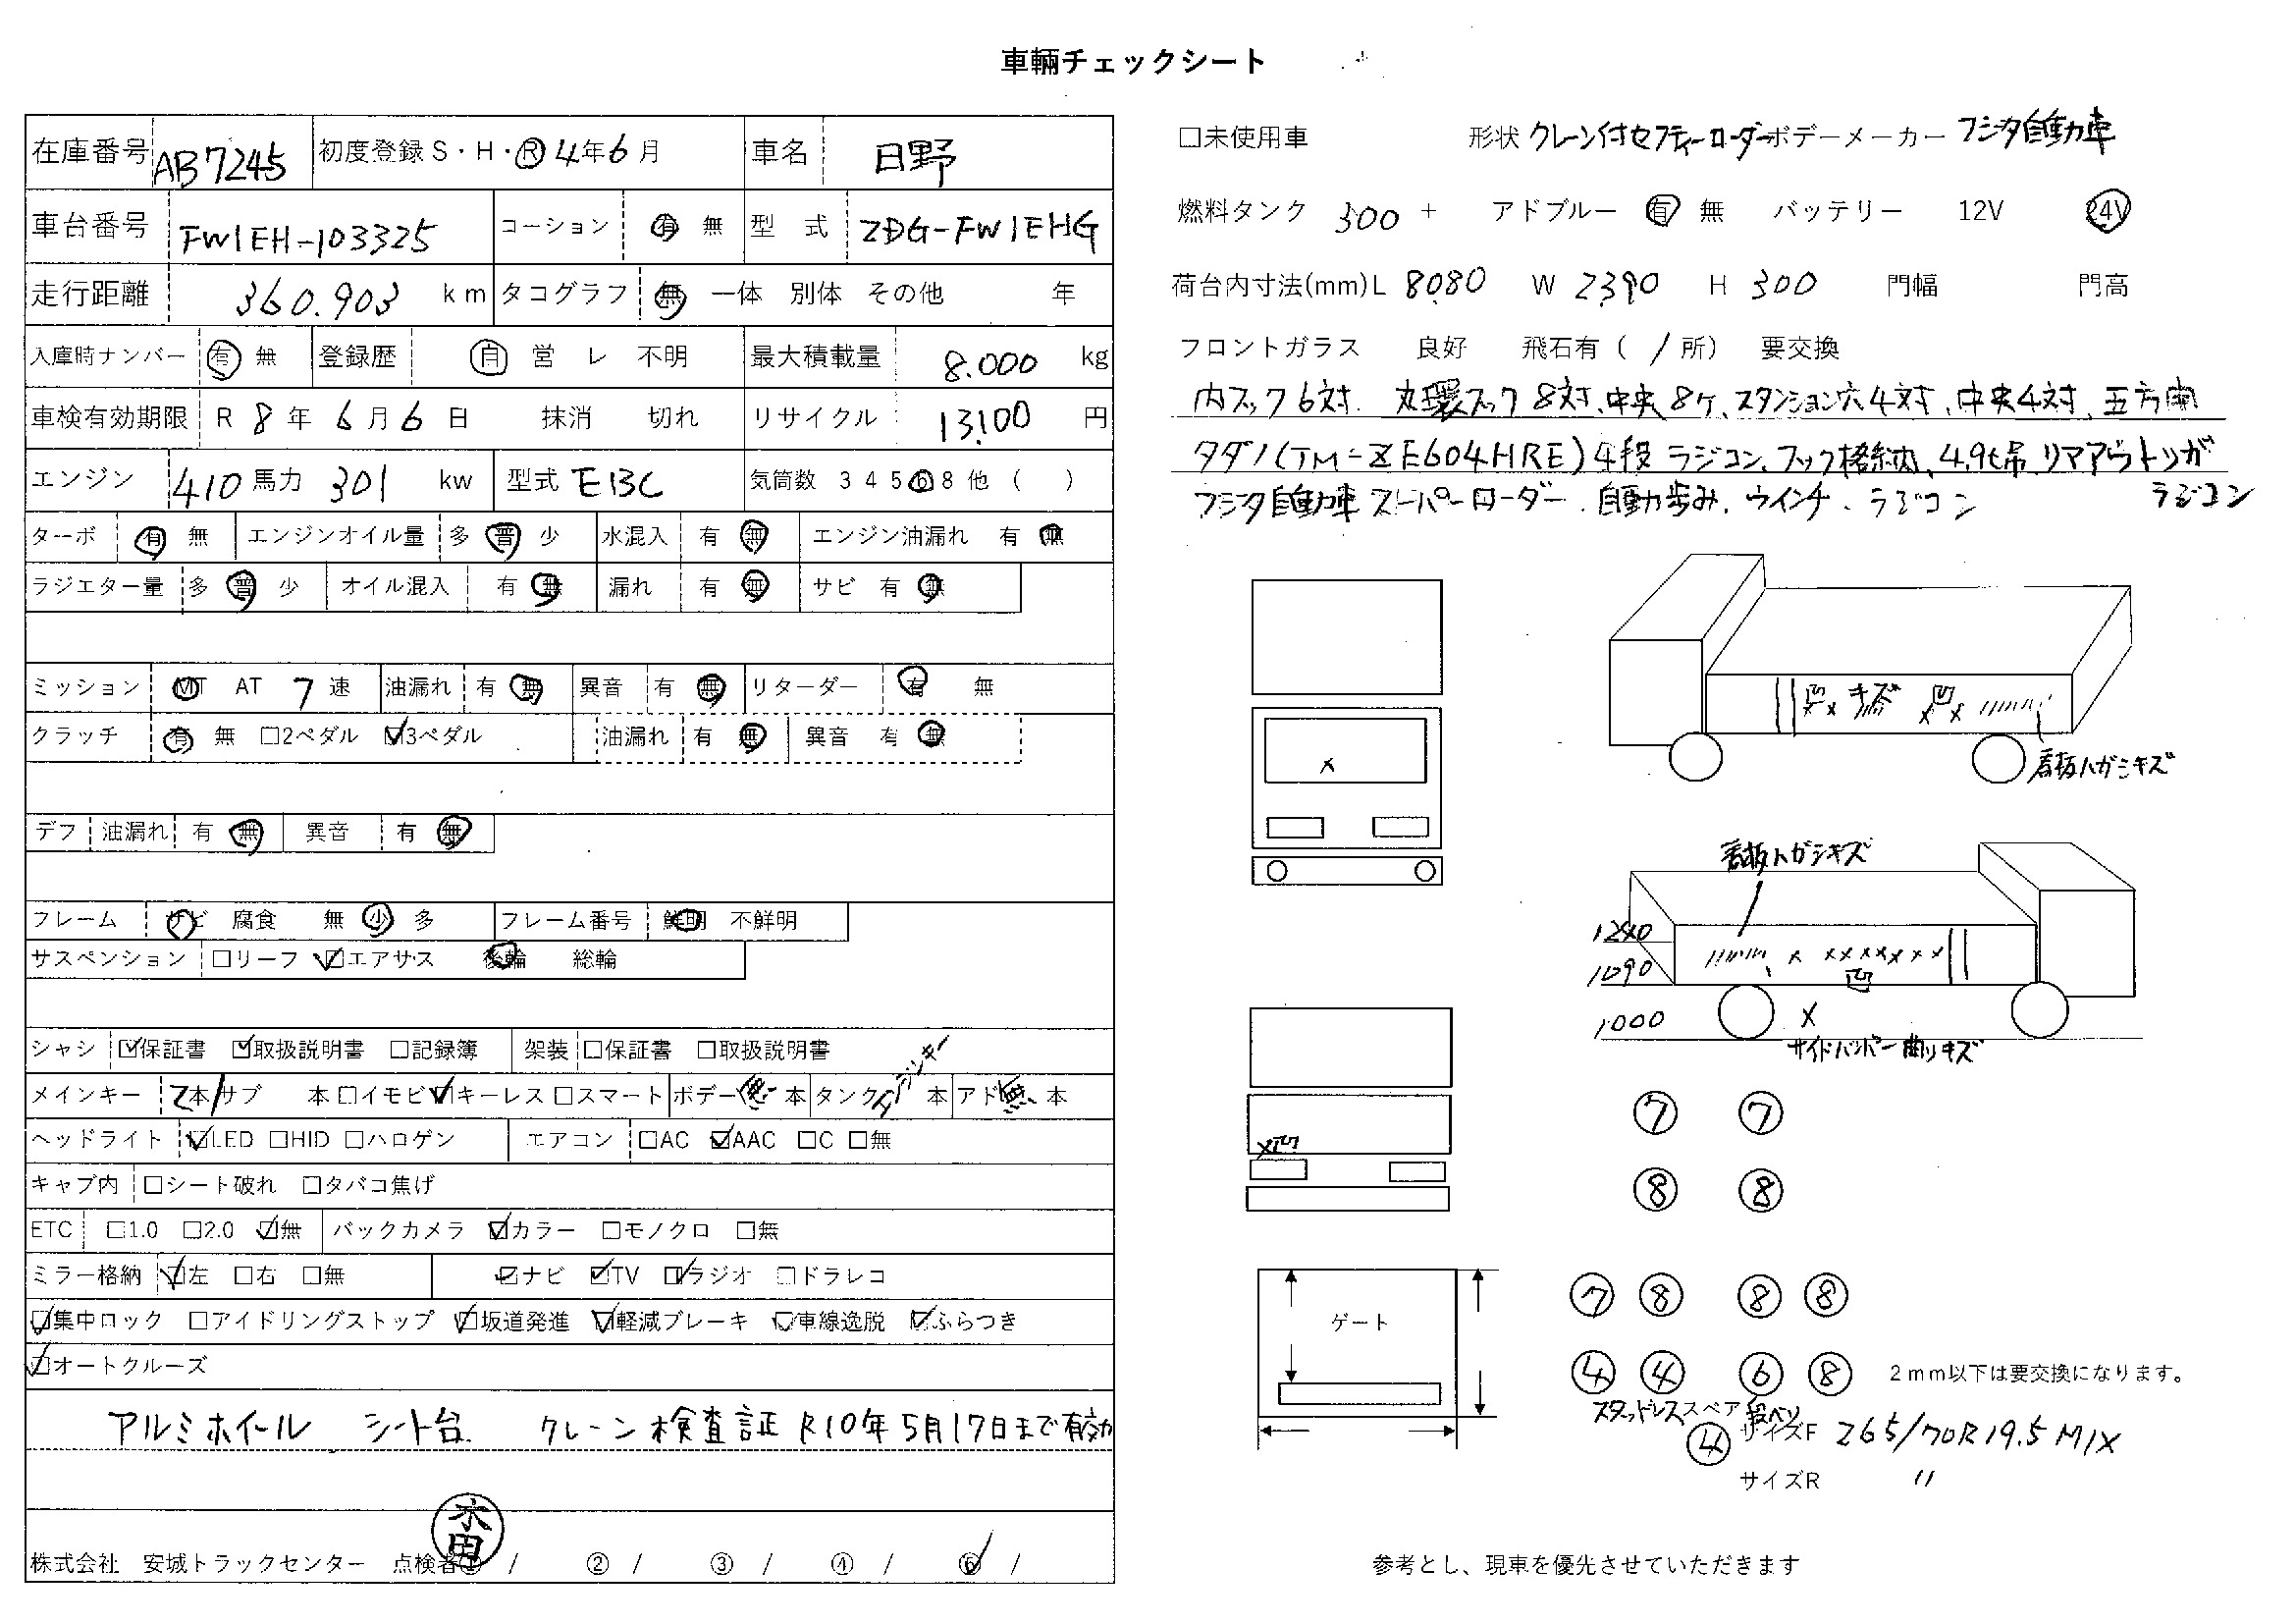 車輌チェックシート
在庫番号 AB7245 初度登録 S・H・R 4年6月 車名 日野
車台番号 FW1EH-103325 コーション 有 無 型 式 2DG-FW1EHG
走行距離 360.903 km タコグラフ 無 一体 別体 その他 年
入庫時ナンバー 有 無 登録歴 自 営 レ 不明 最大積載量 8.000 kg
車検有効期限 R 8 年 6 月 6 日 抹消 切れ リサイクル 13,100 円
エンジン 410 馬力 301 kw 型式 E13C 気筒数 3 4 5 6 8 他 ( )
ターボ 有 無 エンジンオイル量 多 普 少 水混入 有 無 エンジン油漏れ 有 無
ラジエター量 多 普 少 オイル混入 有 無 漏れ 有 無 サビ 有 無
ミッション MT AT 7 速 油漏れ 有 無 異音 有 無 リターダー 有 無
クラッチ 有 無 □2ペダル ☑3ペダル 油漏れ 有 無 異音 有 無
デフ 油漏れ 有 無 異音 有 無
フレーム サビ 腐食 無 少 多 フレーム番号 鮮明 不鮮明
サスペンション □リーフ ☑エアサス 後輪 総輪
シャシ ☑保証書 ☑取扱説明書 □記録簿 架装 □保証書 □取扱説明書
メインキー 2本 サブ 本 □イモビ ☑キーレス □スマート ボデー 無 本 タンク エンジンキー 本 アド 無 本
ヘッドライト ☑LED □HID □ハロゲン エアコン □AC ☑AAC □C □無
キャブ内 □シート破れ □タバコ焦げ
ETC □1.0 □2.0 ☑無 バックカメラ ☑カラー □モノクロ □無
ミラー格納 ☑左 □右 □無 ☑ナビ ☑TV ☑ラジオ □ドラレコ
☑集中ロック □アイドリングストップ ☑坂道発進 ☑軽減ブレーキ ☑車線逸脱 ☑ふらつき
☑オートクルーズ
アルミホイール シート台 クレーン検査証 R10年5月17日まで有効
株式会社 安城トラックセンター 点検者① / ② / ③ / ④ / ⑤ /
□未使用車 形状 クレーン付セフティーローダー ボデーメーカー フジタ自動車
燃料タンク 300 + アドブルー 有 無 バッテリー 12V 24V
荷台内寸法(mm) L 8080 W 2390 H 300 門幅 門高
フロントガラス 良好 飛石有 ( / 所) 要交換
内フック6対. 丸環フック8対、中央8ケ、スタンション穴4対、中央4対、五方開
タダノ(TM-ZE604HRE)4段 ラジコン、フック格納、4.9t吊、リアアウトリガ
ラジコン
フジタ自動車 スーパーローダー、自動歩み、ウインチ、ラジコン
凹 キズ 凹
看板ハガシキズ
看板ハガシキズ
1240
1090
凹
1000
サイドバンパー曲リキズ
凹
⑦ ⑦
⑧ ⑧
⑦ ⑧ ⑧ ⑧
④ ④ ⑥ ⑧ 2mm以下は要交換になります。
ゲート
スタッドレス スペア 段ベリ
④ サイズF 265/70R19.5 MIX
サイズR 〃
参考とし、現車を優先させていただきます